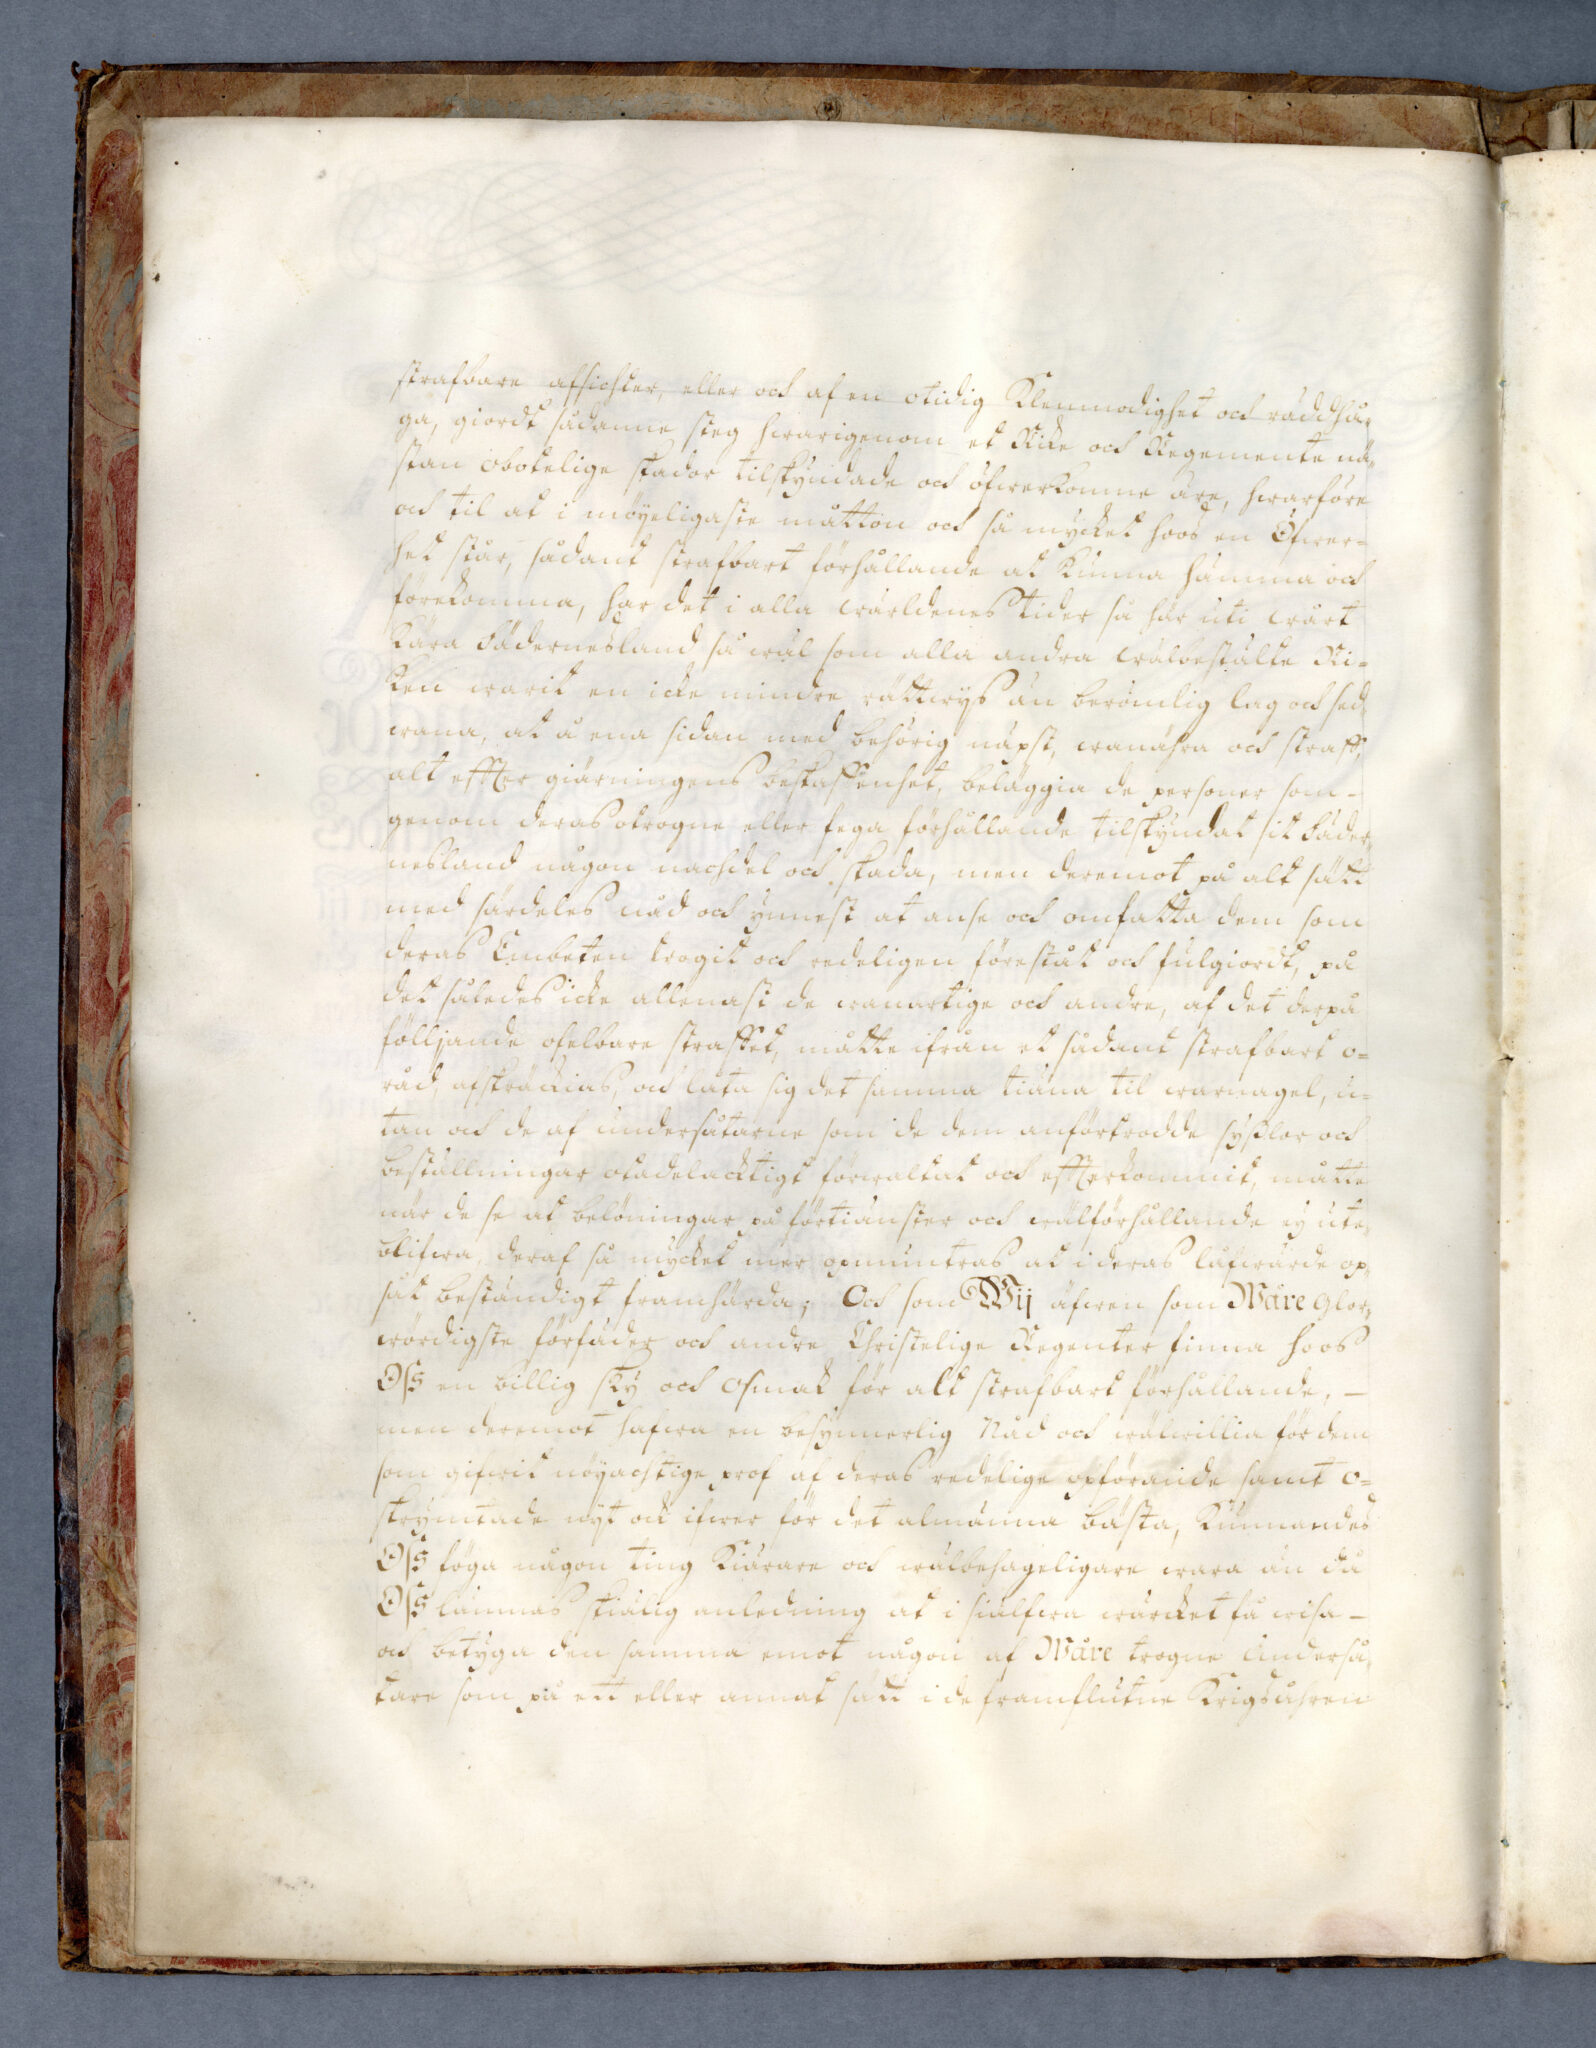 strafbare afsichter, eller och af en otidig Klenmodighet och räddhå-
ga, giordt sådanne steg hwarigenom et Rike och Regemente nä-
stan obotelige skador tilskyndade och öfwerkomne äre, hwarföre
och til at i möyeligaste måtton och så mycket hoos en Öfwer-
het står, sådant strafbart förhållande at kunna hämma och
förekomma, har det i alla wärldenes tider så här uti wårt
kära Fädernesland så wäl som alla andra wälbestälte Ri-
ken warit en icke mindre rättwys än berömlig lag och sed-
wana, at å ena sidan med behörig näpst, wanähra och straff,
alt effter giärningens beskaffenhet, beläggia de personer som-
genom deras otrogne eller fega förhållande tilskyndat sit Fäder-
nesland någon nachdel och skada, men deremot på alt sätt
med särdeles nåd och ynnest at anse och omfatta dem som
deras Embeten trogit och redeligen förestått och fulgiordt, på
det således icke allenast de wanartige och andre, af det derpå
följande ofelbare straffet, måtte ifrån et sådant strafbart o-
råd, afskräckias, och låta sig det samma tiäna til warnagel, u-
tan och de af undersåtarne som i de dem anförtrodde sysslor och
beställningar otadelachtigt förwaltat och effterkommit, måtte
när de se at belöningar på förtiänster och wälförhållande ey ute-
blifwa, deraf så mycket mer opmuntras at i deras låfwärde op-
såt beständigt framhärda; Och som Wij äfwen som Wåre Glor-
wördigste förfäder och andre Christelige Regenter finna hoos
Oss en billig sky och osmak för alt strafbart förhållande, -
men deremot hafwa en besynnerlig Nåd och wälwillia för dem
som gifwit nöyachtige prof af deras redelige opförande samt o-
skrymtade nyt och ifwer för det almänna bästa, kunnandes
Oss föga någon ting kiärare och wälbehageligare wara än då
Oss lämnas skiälig anledning at i siälfwa wärcket få wisa -
och betyga den samma emot någon af Wåre trogne Underså-
tare som på ett eller annat sätt i de framflutne Krigsåhren